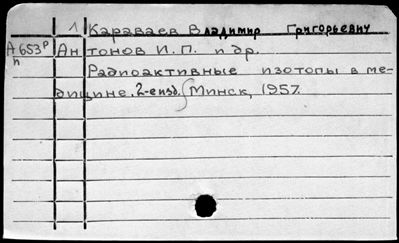 1 Караваев Владимир Григорьевич
А 653р Антонов И.П. и др.
п Радиоактивные изотопы в ме-
дицине. 2-е изд. Минск, 1957.